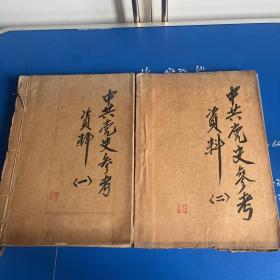 中共党史参考
资料
〈一〉
中共党史参考
资料
〈二〉